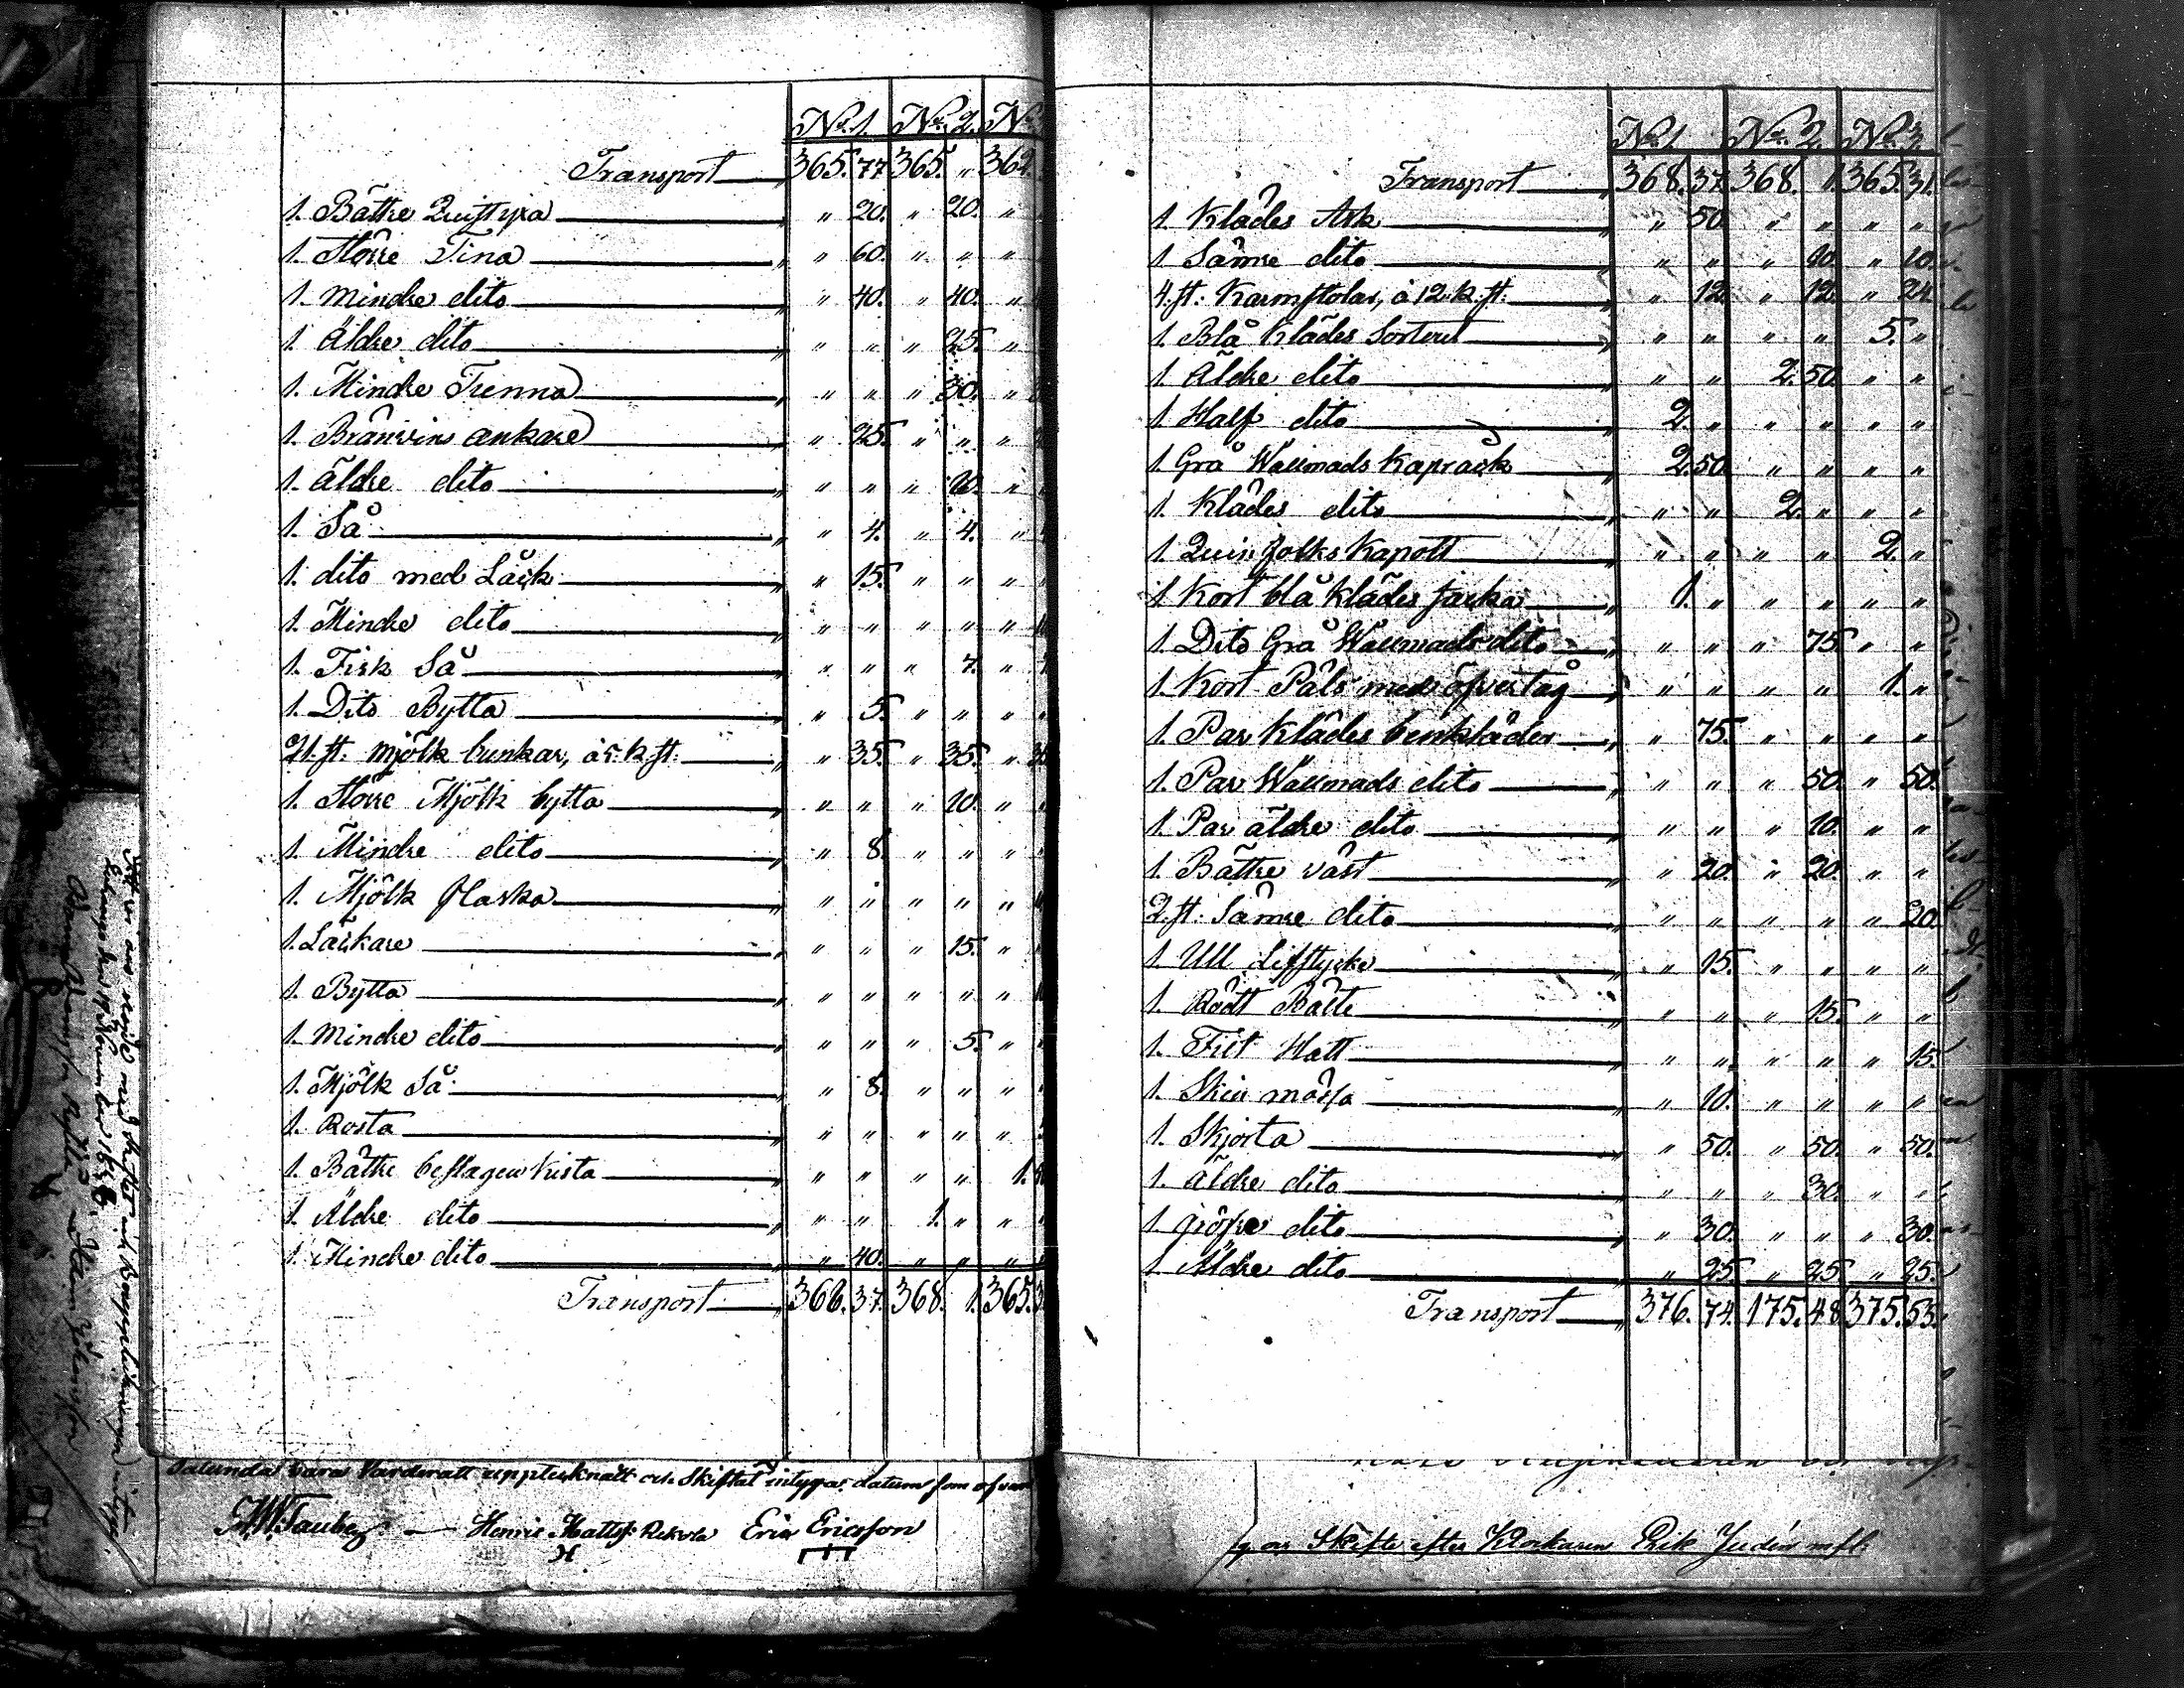 No. 1. No. 2. No.
Transport 365. 77 365. " 362.
1. Bättre Quistyxa " 20. " 20. "
1. Större Tina " 60. " " "
1. mindre dito " 40. " 40. "
1. Äldre dito " " " 25. "
1. Mindre Trenna " " " 30. "
1. Bränvins ankare " 25. " " "
1. äldre dito " " " 20. "
1. Så " 4. " 4. "
1. dito med Låck " 15. " " "
1. Mindre dito " " " " "
1. Fisk Så " " " 7. "
1. Dito Bytta " 5. " " "
21. st. mjölk bunkar, à 5. k. st. " 35. " 35. "
1. Större Mjölk bytta " " " 10. "
1. Mindre dito " 8. " " "
1. Mjölk flaska " " " " "
1. Läckare " " " 15. "
1. Bytta " " " " "
1. mindre dito " " " 5. "
1. Mjölk Så " 8. " " "
1. Rosta " " " " "
1. Bättre beslagen Kista " " " " 1.
1. Äldre dito " " 1. " "
1. Mindre dito " 40. " " "
Transport 368. 37. 368. 1. 365.
Sålunda vara Värderatt upptecknatt och Skiftat intygar, datum som ofvan
Henric Mattss: Rekola Eric Ericsson
No. 1 No. 2. No. 3.
Transport 368. 37. 368. 1. 365. 31.
1 Klädes Ask " 50. " " " "
1 Sämre dito " " " 10. " 10.
4. st: Karmstolar, à 12. k. st: " 12. " 12. " 24.
1. Blå Klädes Sortout " " " " 5. "
1 Äldre dito " " 2. 50. " "
1 Half dito 2. " " " " "
1 Grå Wallmads Kapråck 2. 50 " " " "
1. Klädes dito " " 2. " " "
1 Quinfolks Kapott " " " " 2. "
1 Kort blå Klädes jacka 1. " " " " "
1. Dito Grå Wallmads dito " " " 75. " "
1. Kort Päls med öfvertåg " " " " 1. "
1. Par Klädes benkläder " 75. " " " "
1. Par Wallmads dito " " " 50. " 50.
1. Par äldre dito " " " 10. " "
1. Bättre väst " 20. " 20. " "
2. st: Sämre dito " " " " " 20.
1. Ull Lifstycke " 15. " " " "
1. Rödt Bälte " " " 15. " "
1. Filt Hatt " " " " " 15.
1. Skin mössa " 10. " " " "
1. Skjorta " 50. " 50. " 50.
1. äldre dito " " " 30. " "
1. gröfre dito " 30. " " " 30.
1 Äldre dito " 25 " 25 " 25.
Transport 376. 74. 175. 48 375. 53.
Skifte efter Klockaren Erik Judén mfl: